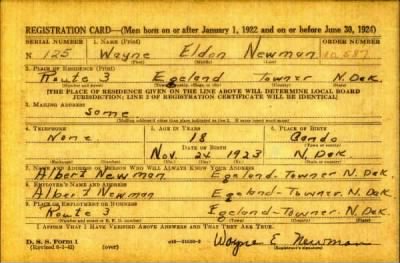 REGISTRATION CARD—(Men born on or after January 1, 1922 and on or before June 30, 1924)
SERIAL NUMBER 1. NAME (Print) ORDER NUMBER
N 125 Wayne Eldon Newman
(First) (Middle) (Last)
2. PLACE OF RESIDENCE (Print)
Route 3 Egeland Towner N. Dak.
(THE PLACE OF RESIDENCE GIVEN ON THE LINE ABOVE WILL DETERMINE LOCAL BOARD
JURISDICTION; LINE 2 OF REGISTRATION CERTIFICATE WILL BE IDENTICAL)
3. MAILING ADDRESS
Same
4. TELEPHONE 5. AGE IN YEARS 6. PLACE OF BIRTH
None 18 Cando
DATE OF BIRTH
Nov. 24 1923 N. Dak.
7. NAME AND ADDRESS OF PERSON WHO WILL ALWAYS KNOW YOUR ADDRESS
Albert Newman Egeland-Towner N. Dak.
8. EMPLOYER'S NAME AND ADDRESS
Albert Newman Egeland-Towner N. Dak.
9. PLACE OF EMPLOYMENT OR BUSINESS
Route 3 Egeland-Towner N. Dak.
I AFFIRM THAT I HAVE VERIFIED ABOVE ANSWERS AND THAT THEY ARE TRUE.
D. S. S. Form 1
(Revised 6-9-42) (over) Wayne E. Newman
(Registrant's signature)